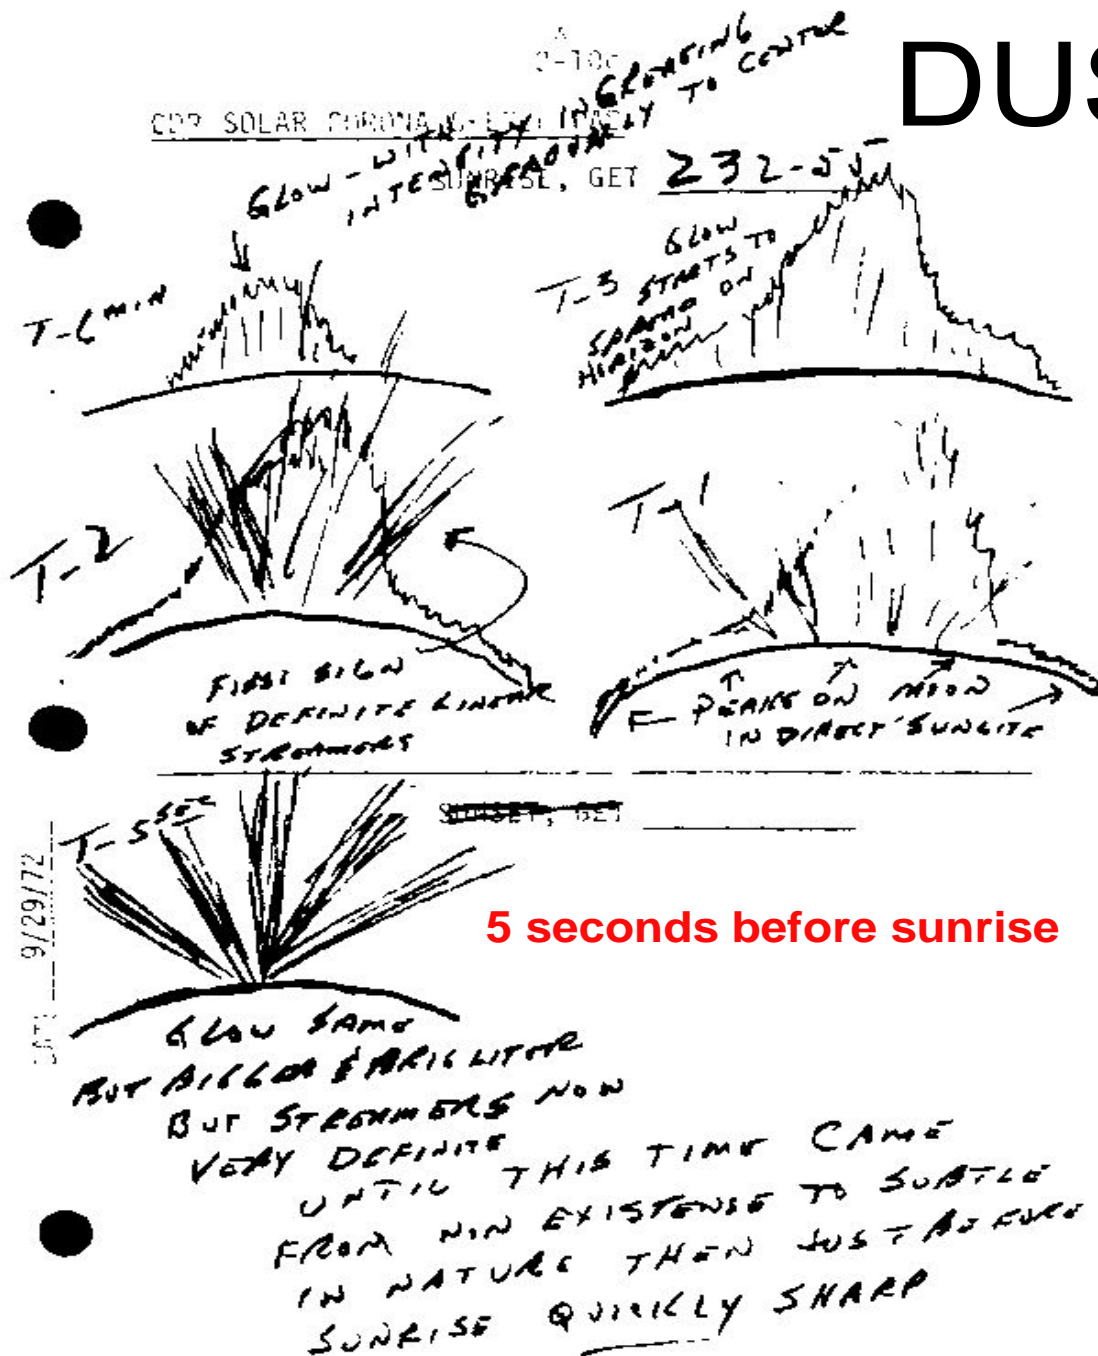 DUS
CDR SOLAR CORONA
GLOW - WITH INCREASING
INTENSITY GRADUALLY TO CENTOR
SUNRISE, GET 232-55
T-6 MIN
T-3 GLOW
STARTS TO
SPREAD ON
HORIZON
T-2
FIRST SIGN
OF DEFINITE LINEAR
STREAMERS
T-1
PEAKS ON MOON
IN DIRECT SUNLITE
SUNSET, GET
T-5 SEC
5 seconds before sunrise
9/29/72
GLOW SAME
BUT BIGGER & BRIGHTER
BUT STREAMERS NOW
VERY DEFINITE
UNTIL THIS TIME CAME
FROM NON EXISTENSE TO SUBTLE
IN NATURE THEN JUST BEFORE
SUNRISE QUICKLY SHARP